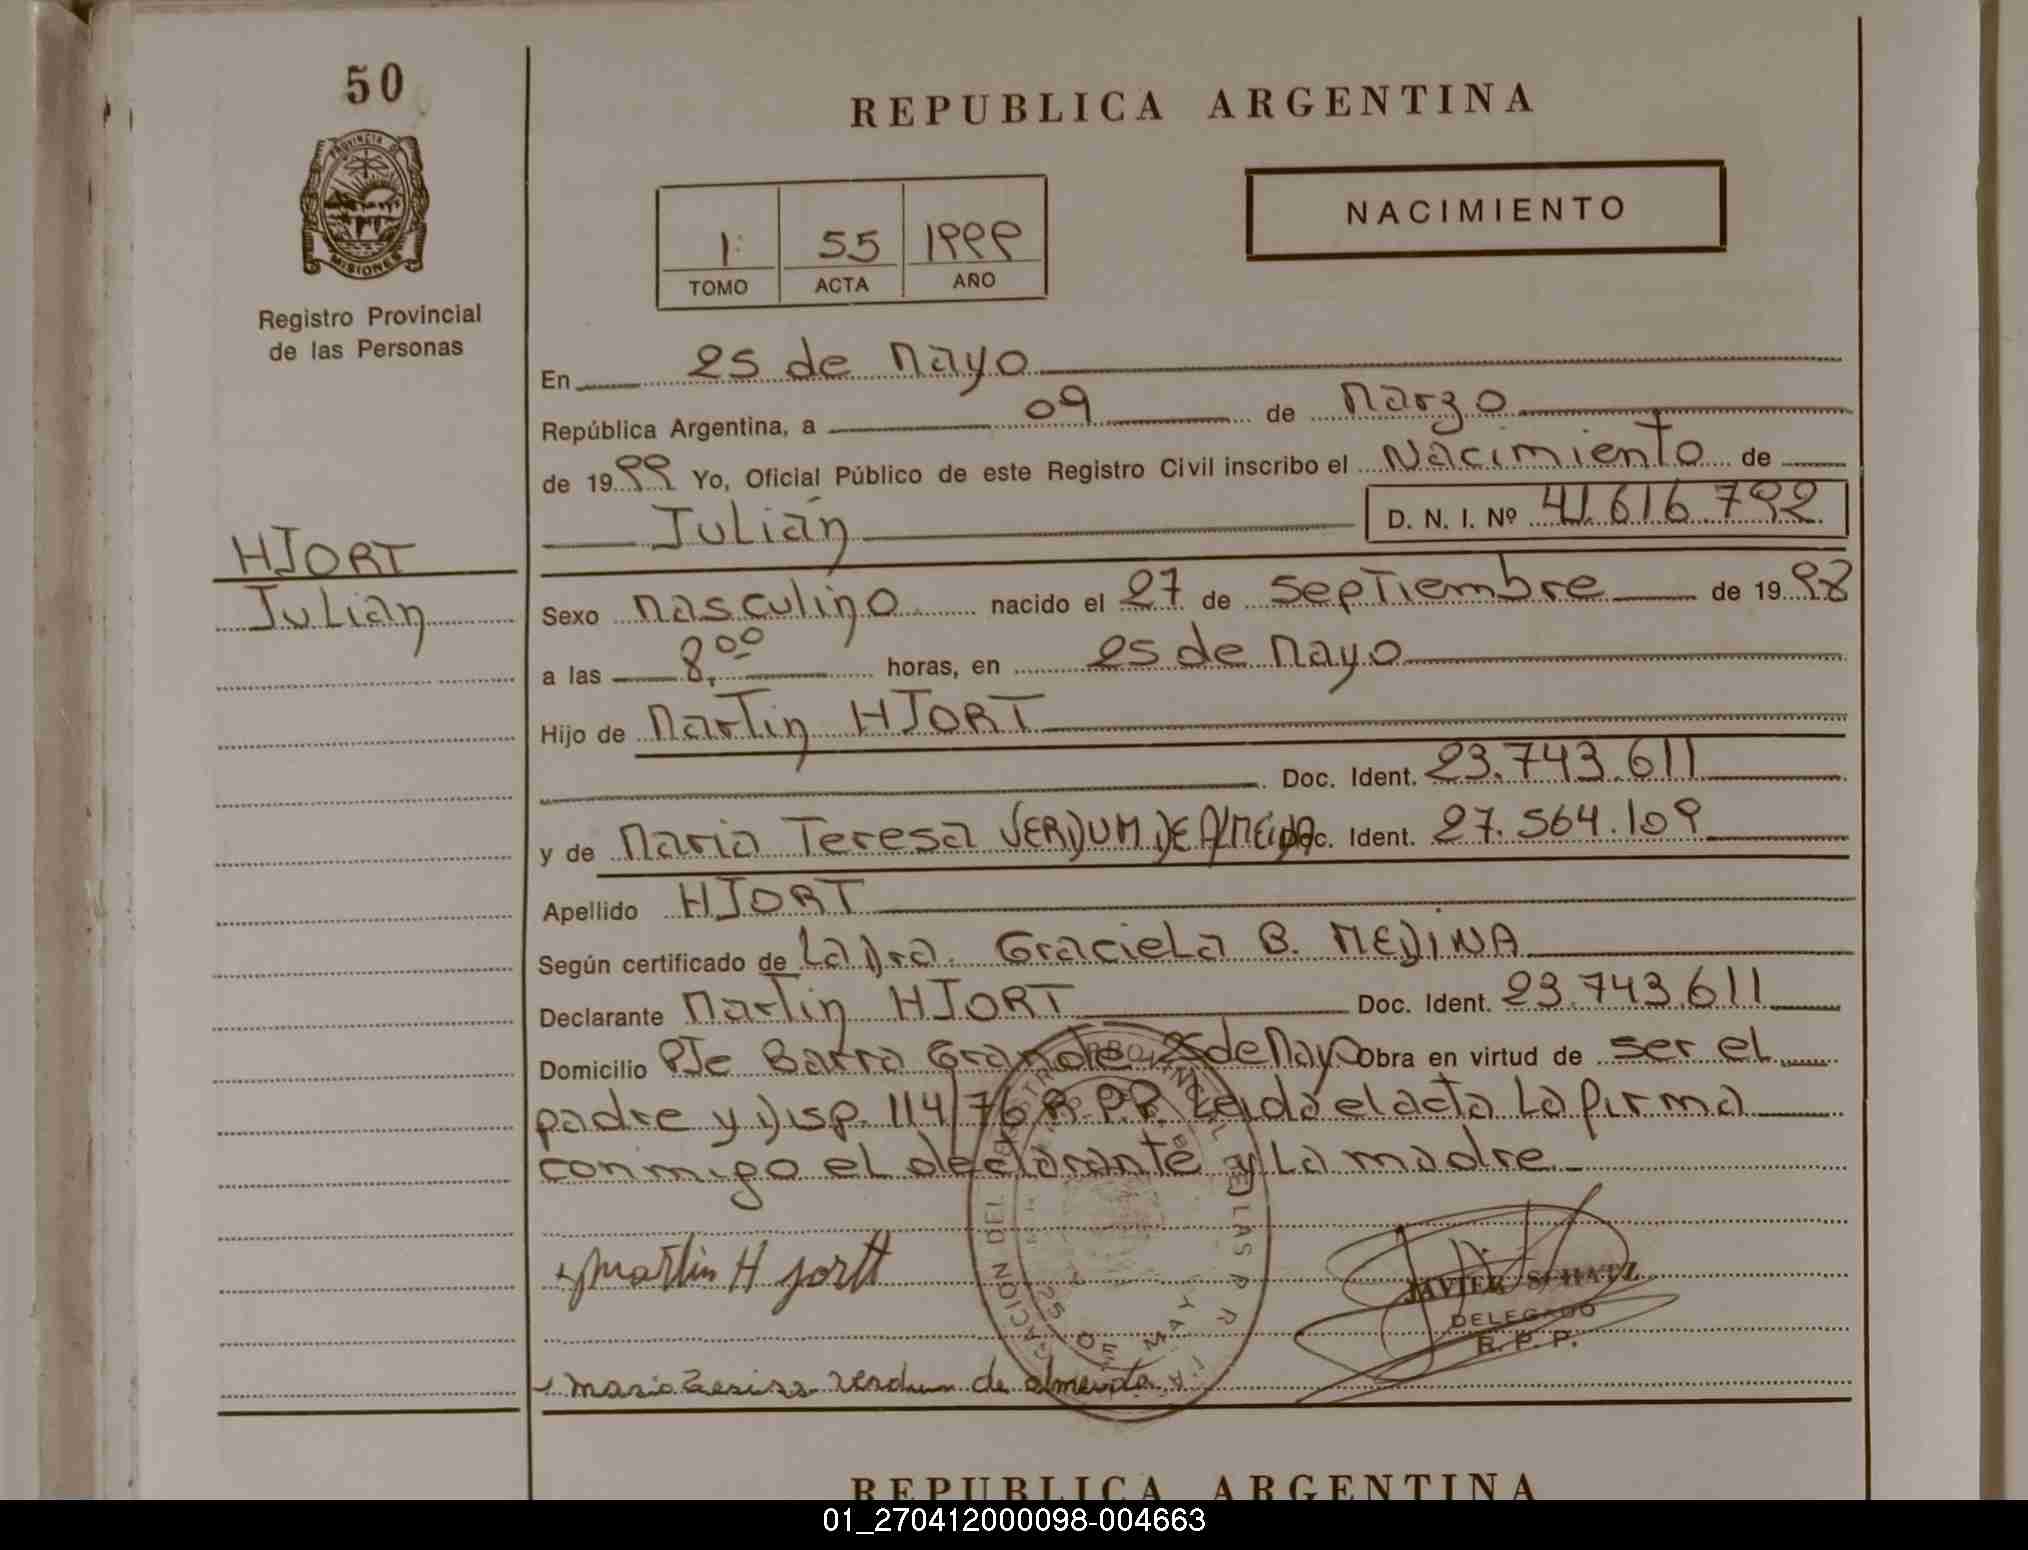 50
REPUBLICA ARGENTINA
PROVINCIA DE
MISIONES
NACIMIENTO
1 55 1999
TOMO ACTA AÑO
Registro Provincial
de las Personas
En 25 de Mayo
República Argentina, a 09 de Marzo
de 1999 Yo, Oficial Público de este Registro Civil inscribo el Nacimiento de
Julián D. N. I. Nº 41.616.792
HJORT
Julián
Sexo Masculino nacido el 27 de Septiembre de 1998
a las 8,00 horas, en 25 de Mayo
Hijo de Martin HJORT
Doc. Ident. 23.743.611
y de Maria Teresa VERDUM DE ALMEIDA Doc. Ident. 27.564.109
Apellido HJORT
Según certificado de La Dra. Graciela B. MEDINA
Declarante Martin HJORT Doc. Ident. 23.743.611
Domicilio Pje Barra Grande 25 de Mayo Obra en virtud de ser el
padre y Disp. 114/76 R.P.P. Leida el acta La firma
conmigo el declarante y La madre
martin Hjortt
JAVIER SCHATZ
DELEGADO
R. P. P.
verdum de almeida
REPUBLICA ARGENTINA
01_270412000098-004663